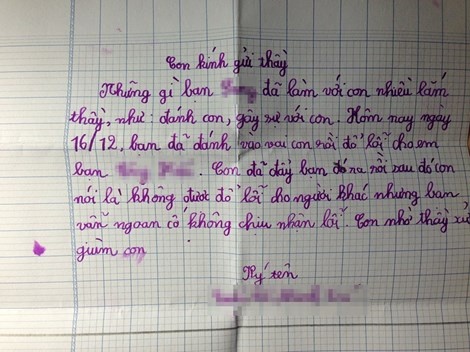 Con kính gửi thầy
Những gì bạn đã làm với con nhiều lắm
thầy, như: đánh con, gây sự với con. Hôm nay ngày
16/12, bạn đã đánh vào vai con rồi đổ lỗi cho em
bạn . Con đã đẩy bạn đó ra rồi sau đó con
nói là không được đổ lỗi cho người khác nhưng bạn
vẫn ngoan cố không chịu nhận lỗi. Con nhờ thầy xử
giùm con
Ký tên